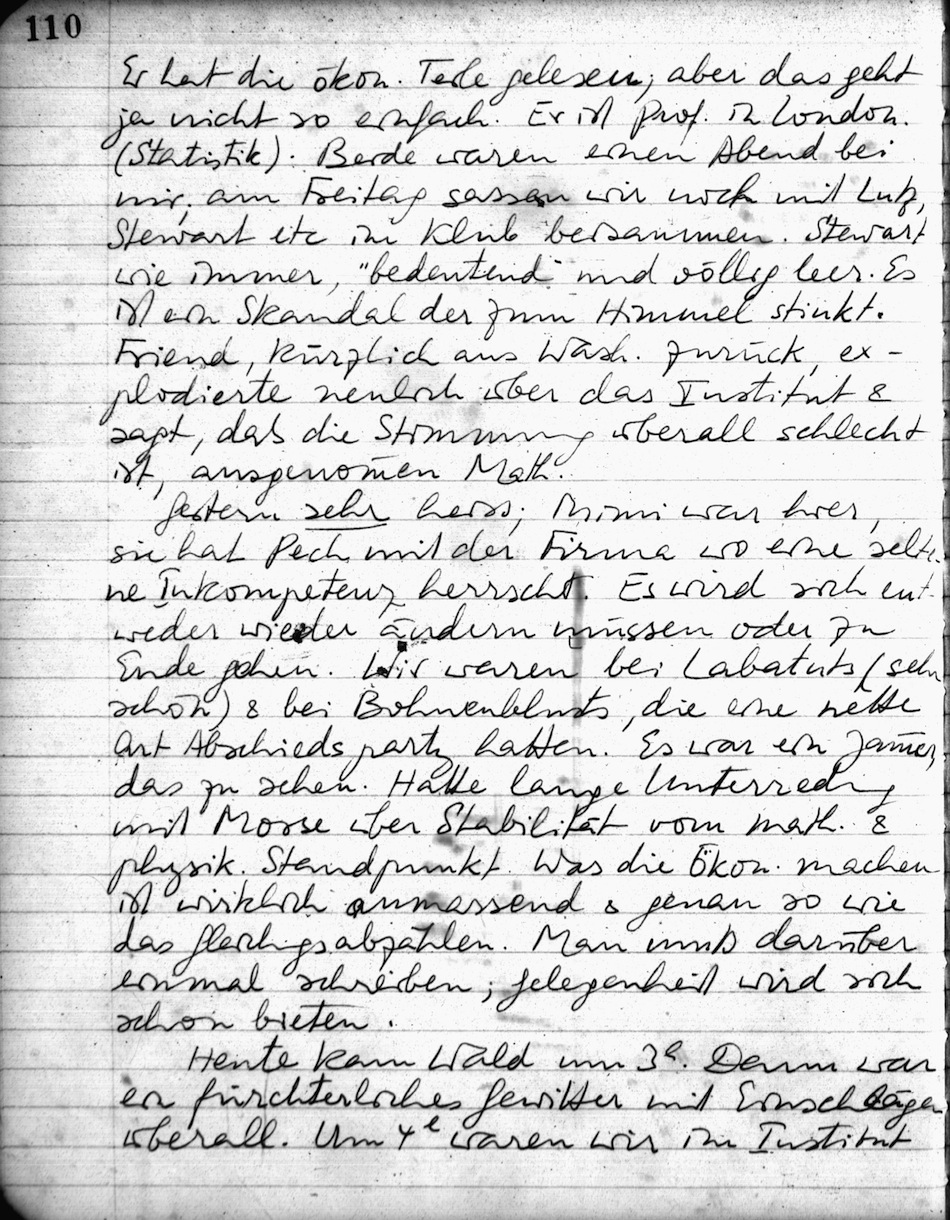 110
Er hat die ökon. Teile gelesen; aber das geht
ja nicht so einfach. Er ist Prof. in London.
(Statistik). Beide waren einen Abend bei
mir, am Freitag sassen wir noch mit Lutz,
Stewart etc im Klub beisammen. Stewart
wie immer, "bedeutend" und völlig leer. Es
ist ein Skandal der zum Himmel stinkt.
Friend, kürzlich aus Wash. zurück, ex-
plodierte neulich über das Institut &
sagt, daß die Stimmung überall schlecht
ist, ausgenom̄en Math.
Gestern sehr heiss; Mimi war hier,
sie hat Pech mit der Firma wo eine selte-
ne Inkompetenz herrscht. Es wird sich ent-
weder wieder ändern müssen oder zu
Ende gehen. Wir waren bei Labatuts (sehr
schön) & bei Bohnenblusts, die eine nette
Art Abschiedsparty hatten. Es war ein Jam̄er,
das zu sehen. Hatte lange Unterredung
mit Morse über Stabilität vom math. &
physik. Standpunkt. Was die Ökon. machen
ist wirklich anmassend & genau so wie
das Gleichgsabzählen. Man muß darüber
einmal schreiben; Gelegenheit wird sich
schon bieten.
Heute kam Wald um 3h. Dann war
ein fürchterliches Gewitter mit Einschlägen
überall. Um 4h waren wir im Institut